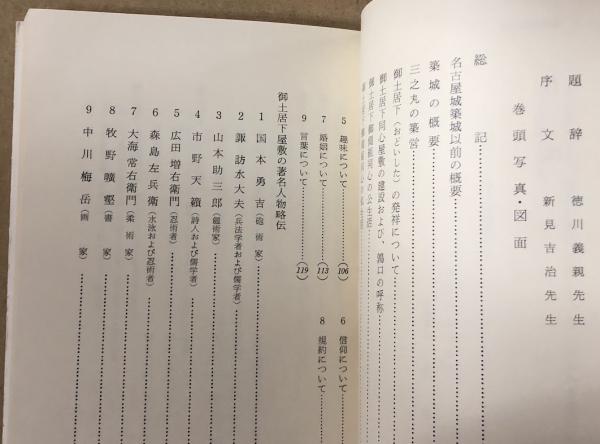 題辞 徳川義親先生
序文 新見吉治先生
巻頭写真・図面
総記
名古屋城築城以前の概要
築城の概要
三之丸の築営
御土居下(おどいした)の発祥について
御土居下同心屋敷の建設および、鶉口の呼称
5 趣味について (106)
6 信仰について
7 婚姻について (113)
8 規約について
9 言葉について (119)
御土居下屋敷の著名人物略伝
1 国本勇吉(砲術家)
2 諏訪水大夫(兵法学者および儒学者)
3 山本助三郎(鎚術家)
4 市野天籟(詩人および儒学者)
5 広田増右衛門(忍術者)
6 森島左兵衛(水泳および忍術者)
7 大海常右衛門(柔術家)
8 牧野曠壑(書家)
9 中川梅岳(画家)